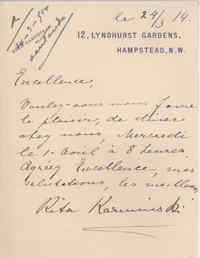 le 24/3 14.
12, LYNDHURST GARDENS,
HAMPSTEAD, N.W.
Excellence,
Voulez-vous nous faire
le plaisir, de diner
chez nous, Mercredi
le 1. Avril à 8 heures.
Agréez Excellence, mes
salutations, les meilleures
Rita